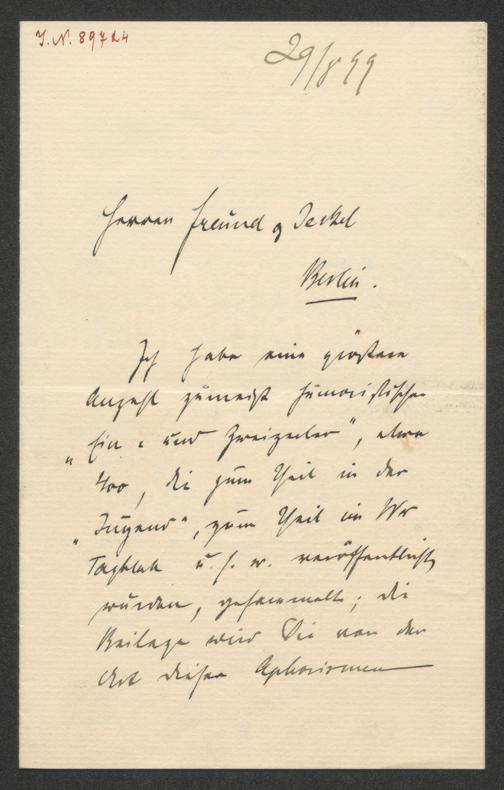 J.N. 89724
29/8 99
Herren Freund & Jeckel
Berlin.
Ich habe eine größere
Anzahl zumeist humoristischer
„Ein- und Zweizeiler", etwa
400, die zum Theil in der
„Jugend", zum Theil im Wr
Tagblatt u.s.w. veröffentlicht
wurden, gesammelt; die
Beilage wird Sie von der
Art dieser Aphorismen